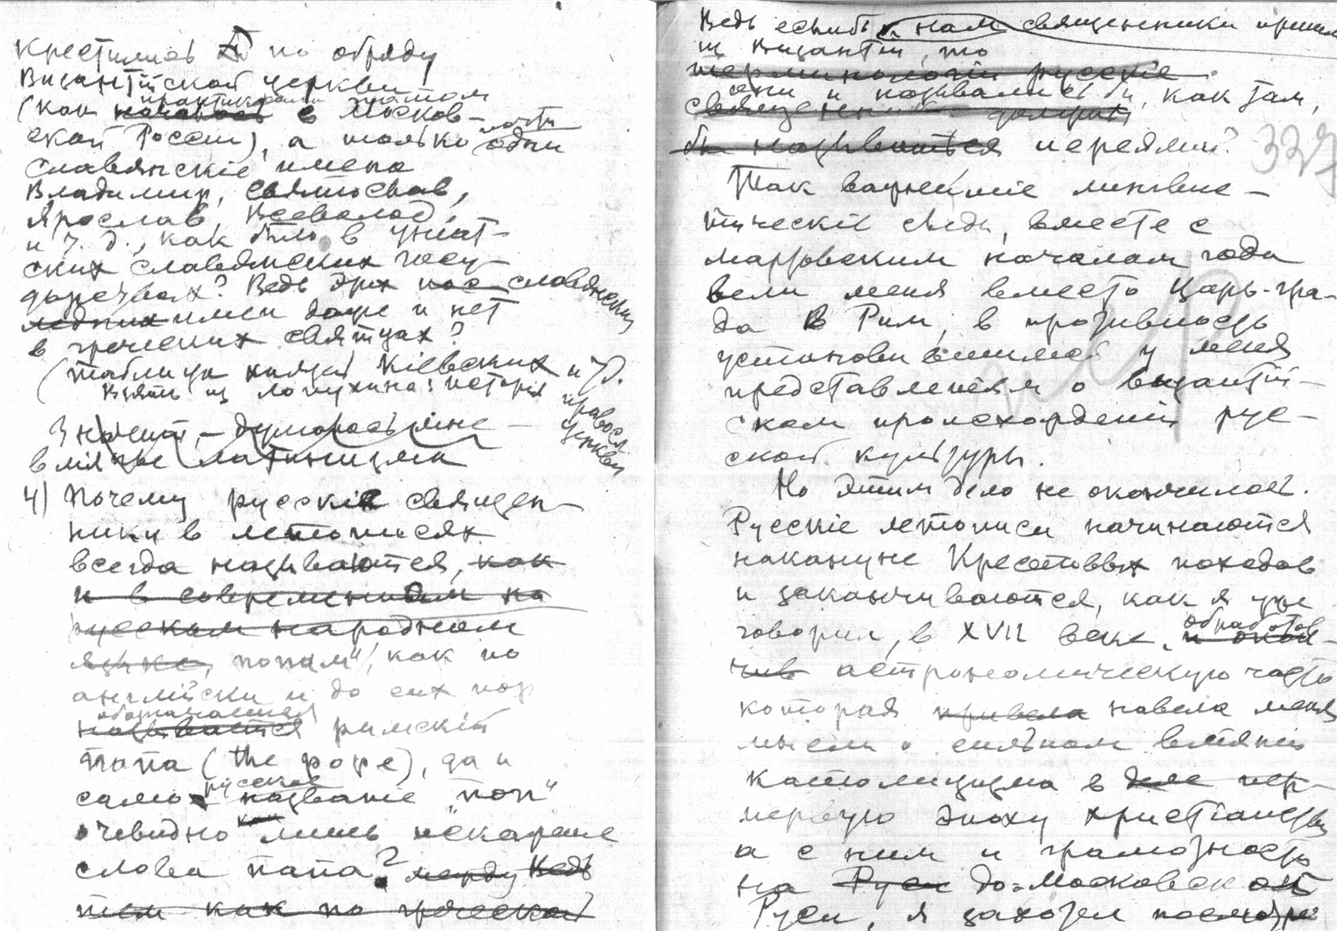 крестились по обряду
Византійской церкви
(как практиковали потом
начались в Москов-
ской Россіи), а только почти одни
славянскіе имена
Владимир, Святослав,
Ярослав, Всеволод,
и т. д., как было в уніат-
ских славянских госу-
дарствах? Ведь этих славянских
имен даже и нет
в греческих святцах?
(таблица князей Кіевских и т.д.
Взять из Лопухина: исторія
правосл. церкви
Значит
вліянье латинизма
4) Почему русскіе священ-
ники в летописях
всегда называются, как
и в современном на
русском народном
языке, "попам", как по
англійски и до сих пор
обозначается
называется римскій
папа (the pope), да и
само русское названіе "поп"
очевидно лишь искаженіе
слова папа? Ведь
тем как по гречески
Ведь если бы к нам священники пришли
из Византіи, то
терминологіи русскіе
они и назывались бы, как там,
священники
бы называться иереями?
337
Так важнейшіе лингвис-
тическіе следы, вместе с
мартовским началом года
вели меня вместо Царь-гра-
да в Рим, в противность
установившимся у меня
представленіям о византій-
ском происхожденіи рус-
ской культуры.
Но этим дело не окончилось.
Русскіе летописи начинаются
накануне Крестовых походов
и заканчиваются, как я уже
говорил, в XVII веке. обработав
и окон-
чив астрономическую часть
которая привела навела меня
мысли о сильном вліяніи
католицизма в пер-
первую эпоху христіанства
а с ним и грамотность
на Руси до-Московской
Руси, я захотел посмотре